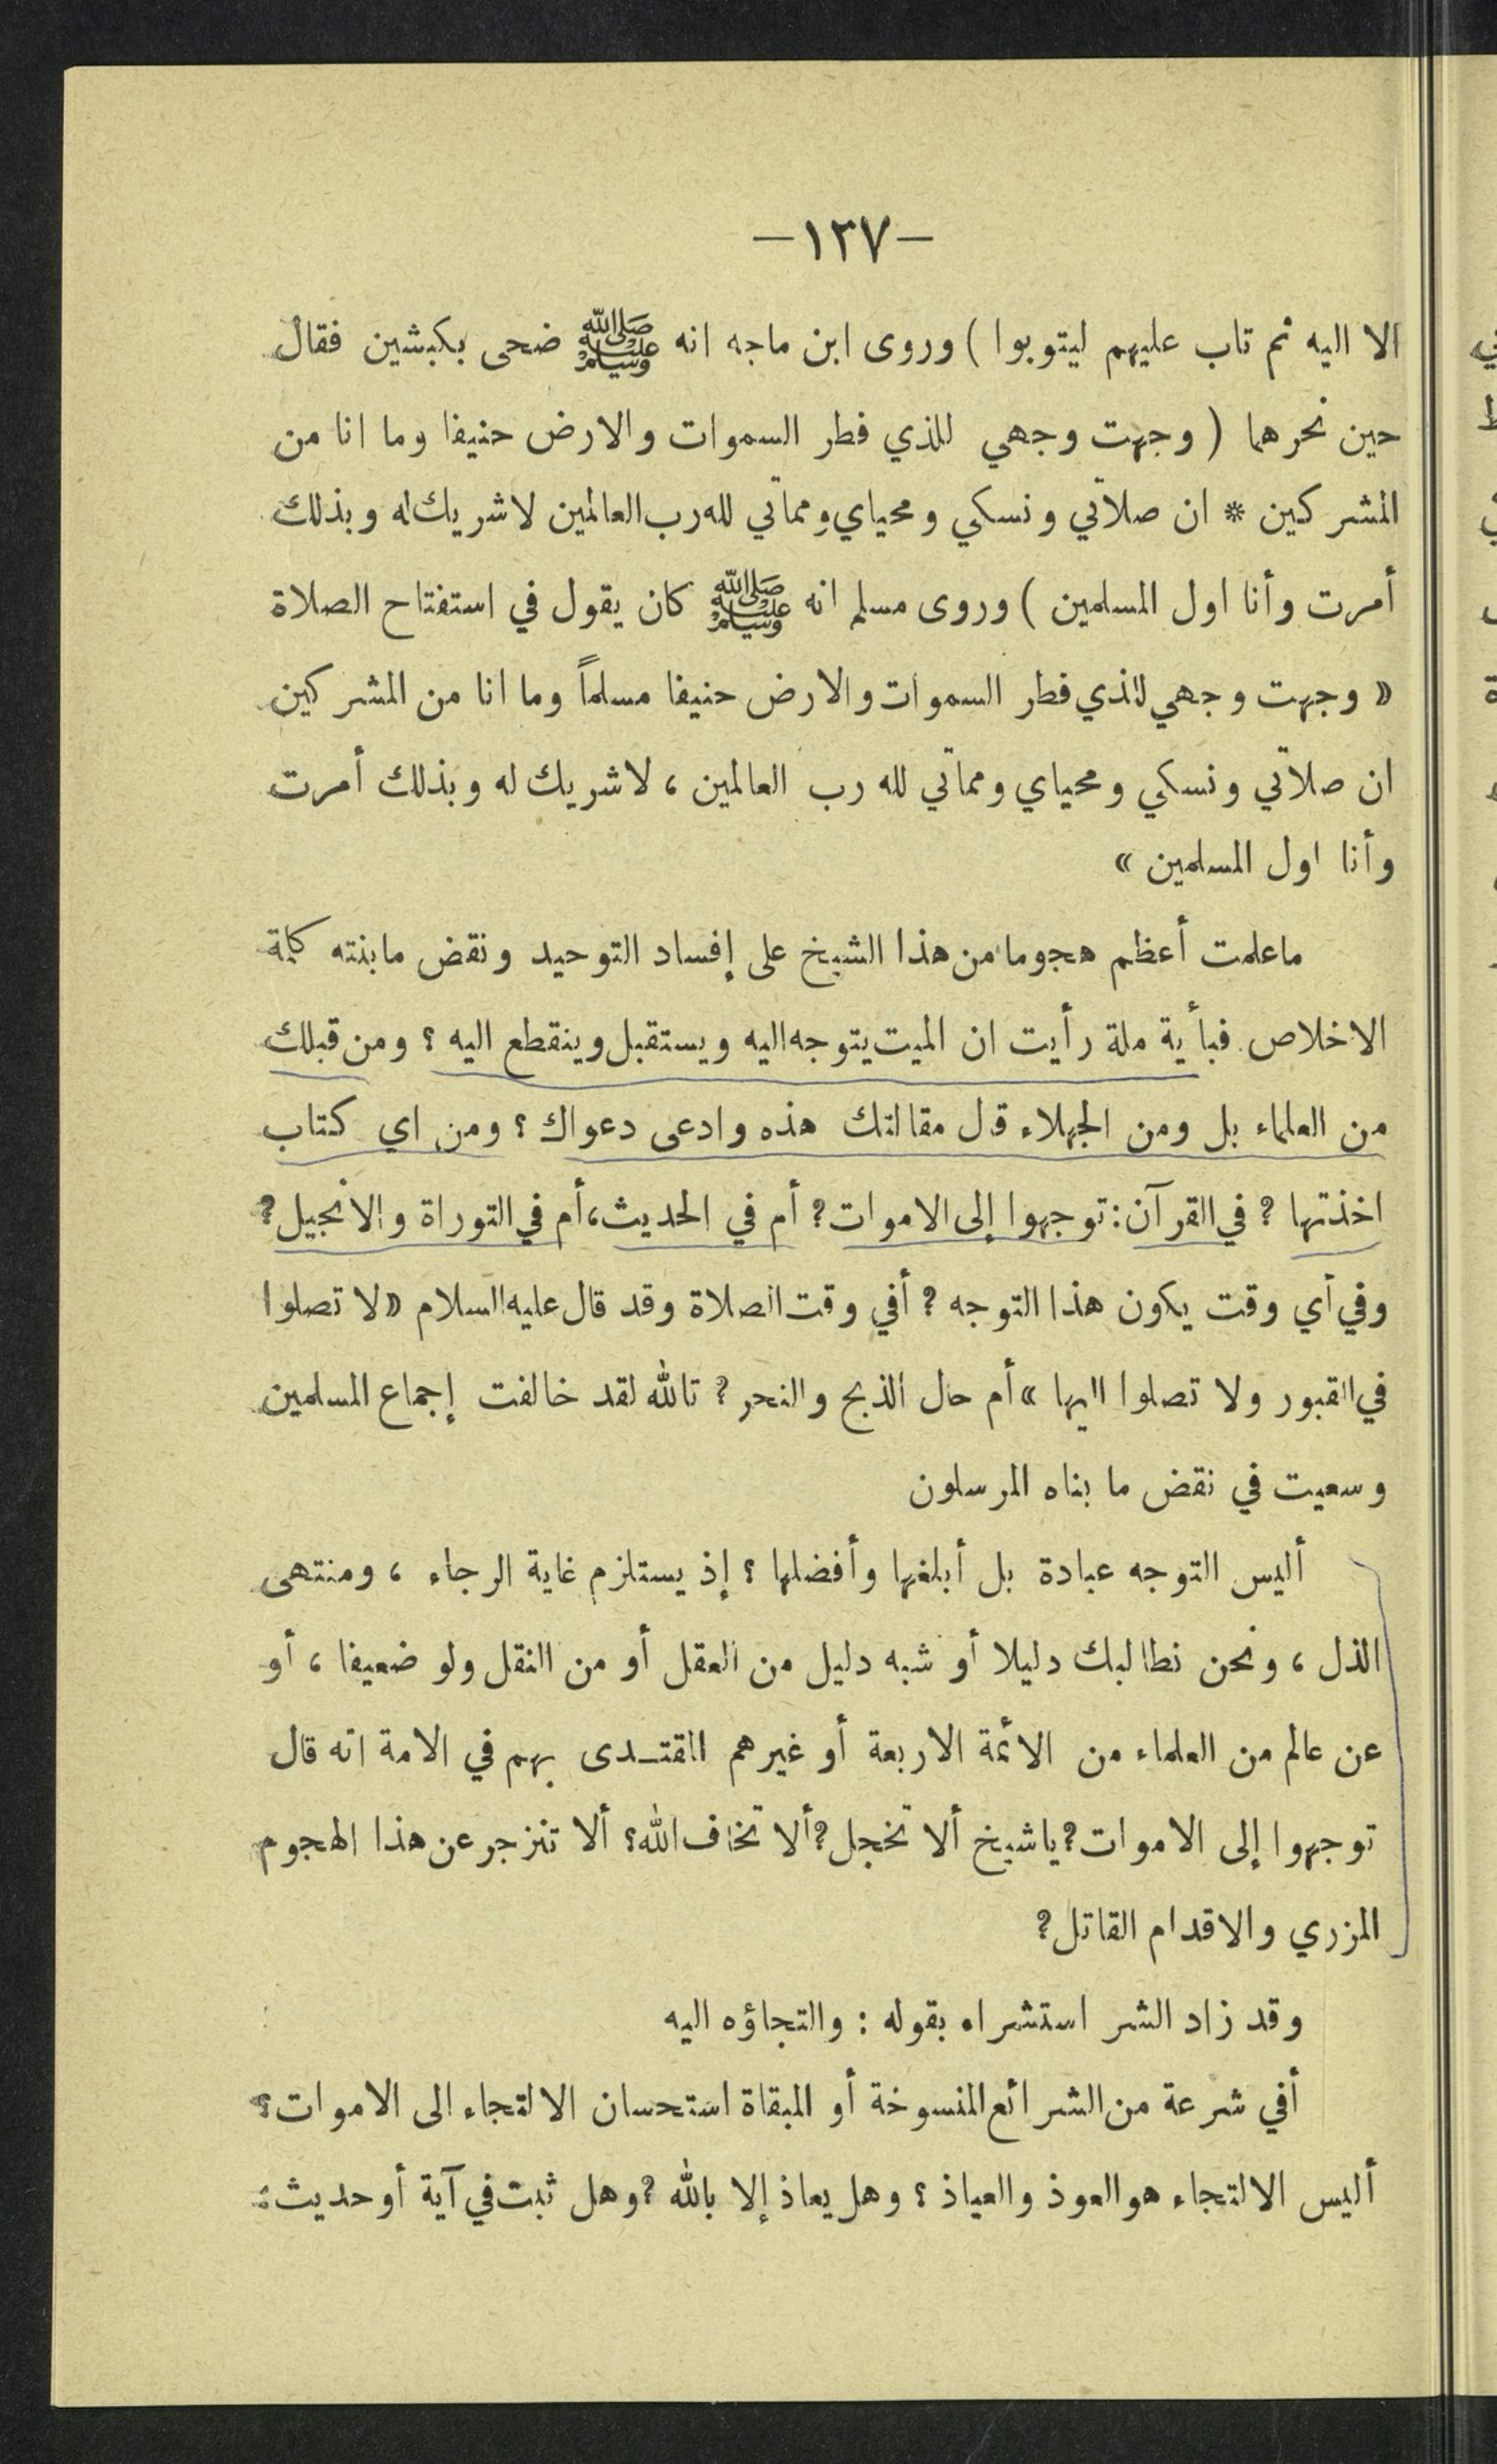 —١٣٧—
الا اليه ثم تاب عليهم ليتوبوا ) وروى ابن ماجه انه ﷺ ضحى بكبشين فقال
حين نحرهما ( وجهت وجهي للذي فطر السموات والارض حنيفا وما انا من
المشركين * ان صلاتي ونسكي ومحياي ومماتي لله رب العالمين لا شريك له وبذلك
أمرت وأنا اول المسلمين ) وروى مسلم انه ﷺ كان يقول في استفتاح الصلاة
« وجهت وجهي للذي فطر السموات والارض حنيفا مسلماً وما انا من المشركين
ان صلاتي ونسكي ومحياي ومماتي لله رب العالمين ، لا شريك له وبذلك أمرت
وأنا اول المسلمين »
ما علمت أعظم هجوما من هذا الشيخ على إفساد التوحيد ونقض ما بنته كلمة
الاخلاص فبأية ملة رأيت ان الميت يتوجه اليه ويستقبل وينقطع اليه ؟ ومن قبلك
من العلماء بل ومن الجهلاء قال مقالتك هذه وادعى دعواك ؟ ومن اي كتاب
اخذتها ? في القرآن : توجهوا إلى الاموات ? أم في الحديث ، أم في التوراة والانجيل ?
وفي أي وقت يكون هذا التوجه ? أفي وقت الصلاة وقد قال عليه السلام « لا تصلوا
في القبور ولا تصلوا اليها » أم حال الذبح والنحر ? تالله لقد خالفت إجماع المسلمين
وسعيت في نقض ما بناه المرسلون
أليس التوجه عبادة بل أبلغها وأفضلها ؟ إذ يستلزم غاية الرجاء ، ومنتهى
الذل ، ونحن نطالبك دليلا أو شبه دليل من العقل أو من النقل ولو ضعيفا ، أو
عن عالم من العلماء من الأئمة الاربعة أو غيرهم المقتدى بهم في الامة انه قال
توجهوا إلى الاموات ? يا شيخ ألا تخجل ? ألا تخاف الله ؟ ألا تنزجر عن هذا الهجوم
المزري والاقدام القاتل ?
وقد زاد الشر استشراه بقوله : والتجاؤه اليه
أفي شرعة من الشرائع المنسوخة أو المبقاة استحسان الالتجاء الى الاموات ؟
أليس الالتجاء هو العوذ والعياذ ؟ وهل يعاذ إلا بالله ? وهل ثبت في آية أو حديث :